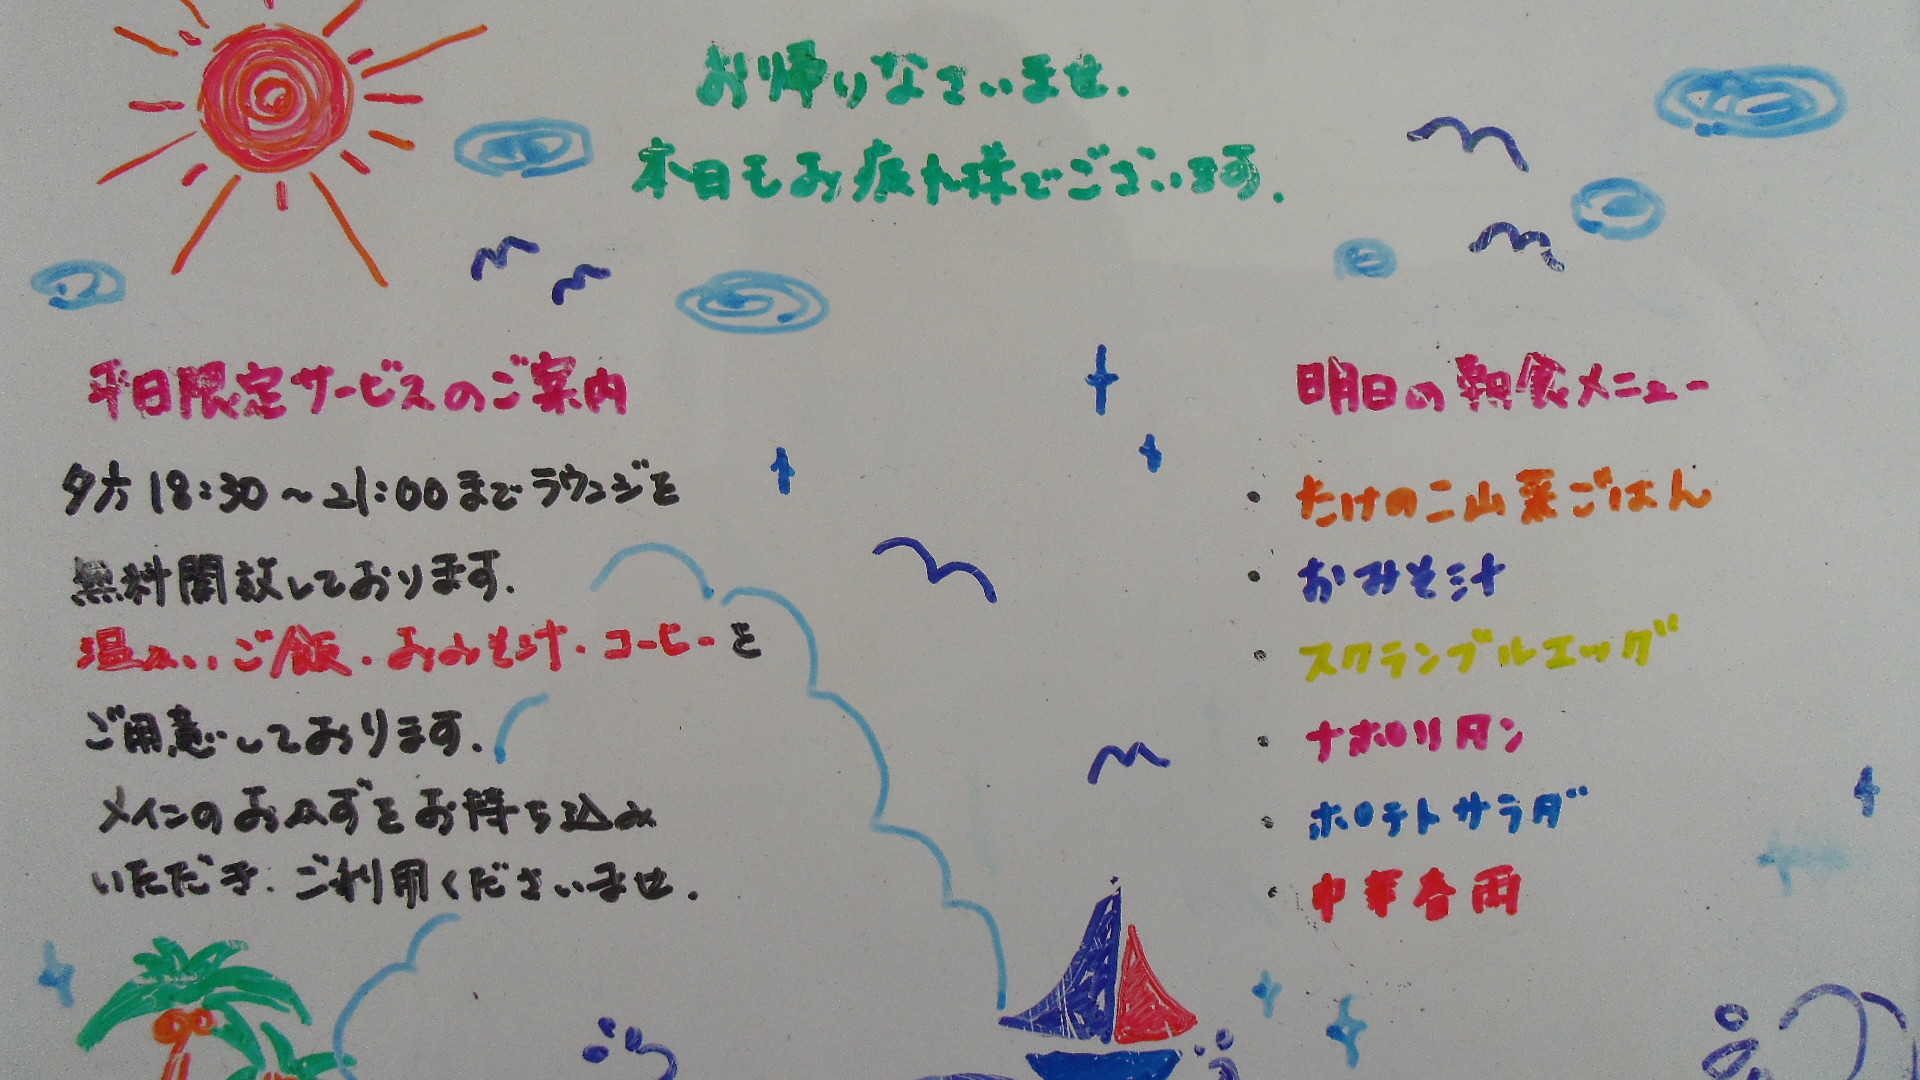 お帰りなさいませ.
本日もお疲れ様でございます.
平日限定サービスのご案内
夕方18:30～21:00までラウンジを
無料開放しております.
温かいご飯・おみそ汁・コーヒーを
ご用意しております.
メインのおかずをお持ち込み
いただき.ご利用くださいませ.
明日の朝食メニュー
・たけのこ山菜ごはん
・おみそ汁
・スクランブルエッグ
・ナポリタン
・ポテトサラダ
・中華春雨